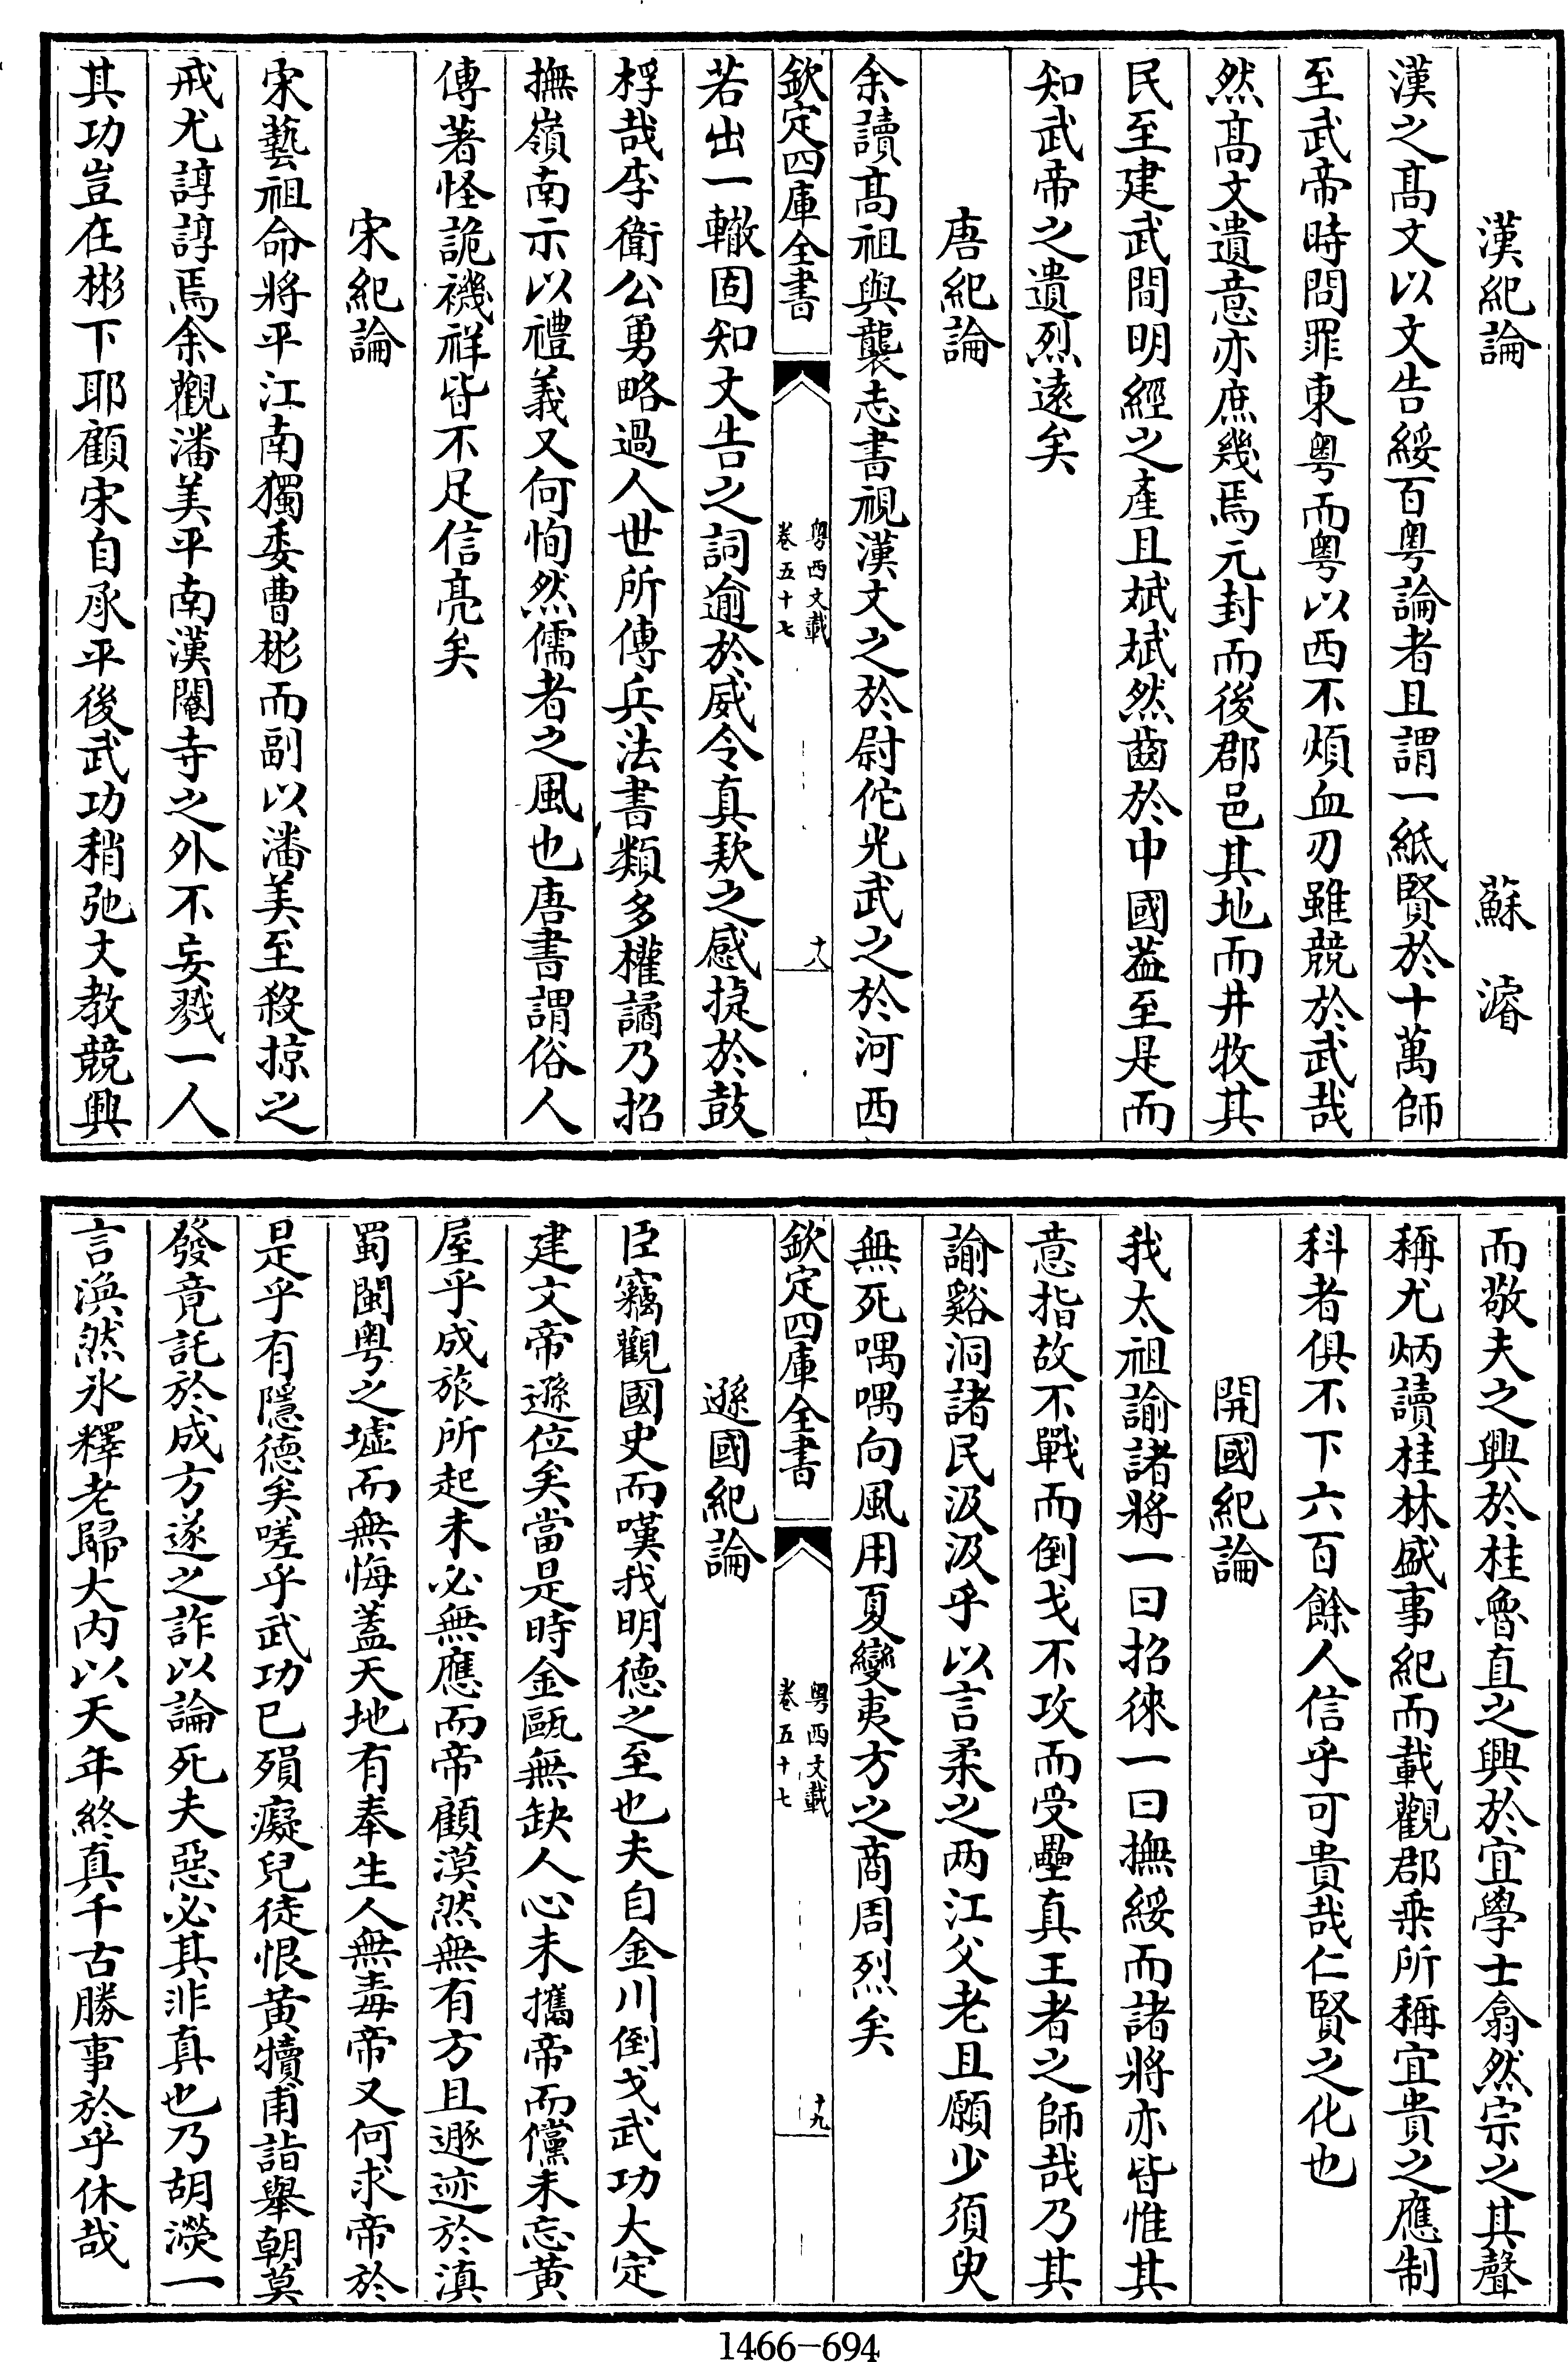 漢紀論　蘇濬
漢之髙文以文告綏百粤論者且謂一紙賢於十萬師
至武帝時問罪東粤而粤以西不煩血刃雖競於武哉
然髙文遺意亦庶幾焉元封而後郡邑其地而井牧其
民至建武間明經之產且斌斌然齒於中國葢至是而
知武帝之遺烈遠矣
唐紀論
余讀髙祖與襲志書視漢文之於尉佗光武之於河西
欽定四庫全書
粤西文載
卷五十七
十八
若出一轍固知文告之詞逾於威令真欵之感捷於鼓
桴哉李衛公勇略過人世所傳兵法書類多權譎乃招
撫嶺南示以禮義又何恂然儒者之風也唐書謂俗人
傳著怪詭禨祥皆不足信亮矣
宋紀論
宋藝祖命將平江南獨委曹彬而副以潘美至殺掠之
戒尤諄諄焉余觀潘美平南漢閹寺之外不妄戮一人
其功豈在彬下耶顧宋自承平後武功稍弛文教競興
而敬夫之興於桂魯直之興於宜學士翕然宗之其聲
稱尤炳讀桂林盛事紀而載觀郡乗所稱宜貴之應制
科者俱不下六百餘人信乎可貴哉仁賢之化也
開國紀論
我太祖諭諸將一曰招徠一曰撫綏而諸將亦皆惟其
意指故不戰而倒戈不攻而受壘真王者之師哉乃其
諭谿洞諸民汲汲乎以言柔之两江父老且願少須臾
無死喁喁向風用夏變夷方之商周烈矣
欽定四庫全書
粤西文載
卷五十七
十九
遜國紀論
臣竊觀國史而嘆我明德之至也夫自金川倒戈武功大定
建文帝遜位矣當是時金甌無缺人心未攜帝而儻未忘黄
屋乎成旅所起未必無應而帝顧漠然無有方且遯迹於滇
蜀閩粤之墟而無悔蓋天地有奉生人無毒帝又何求帝於
是乎有隱德矣嗟乎武功已殞癡兒徒恨黄犢甫詣舉朝莫
發竟託於成方遂之詐以論死夫惡必其非真也乃胡濙一
言渙然氷釋老歸大内以天年終真千古勝事於乎休哉
1466-694